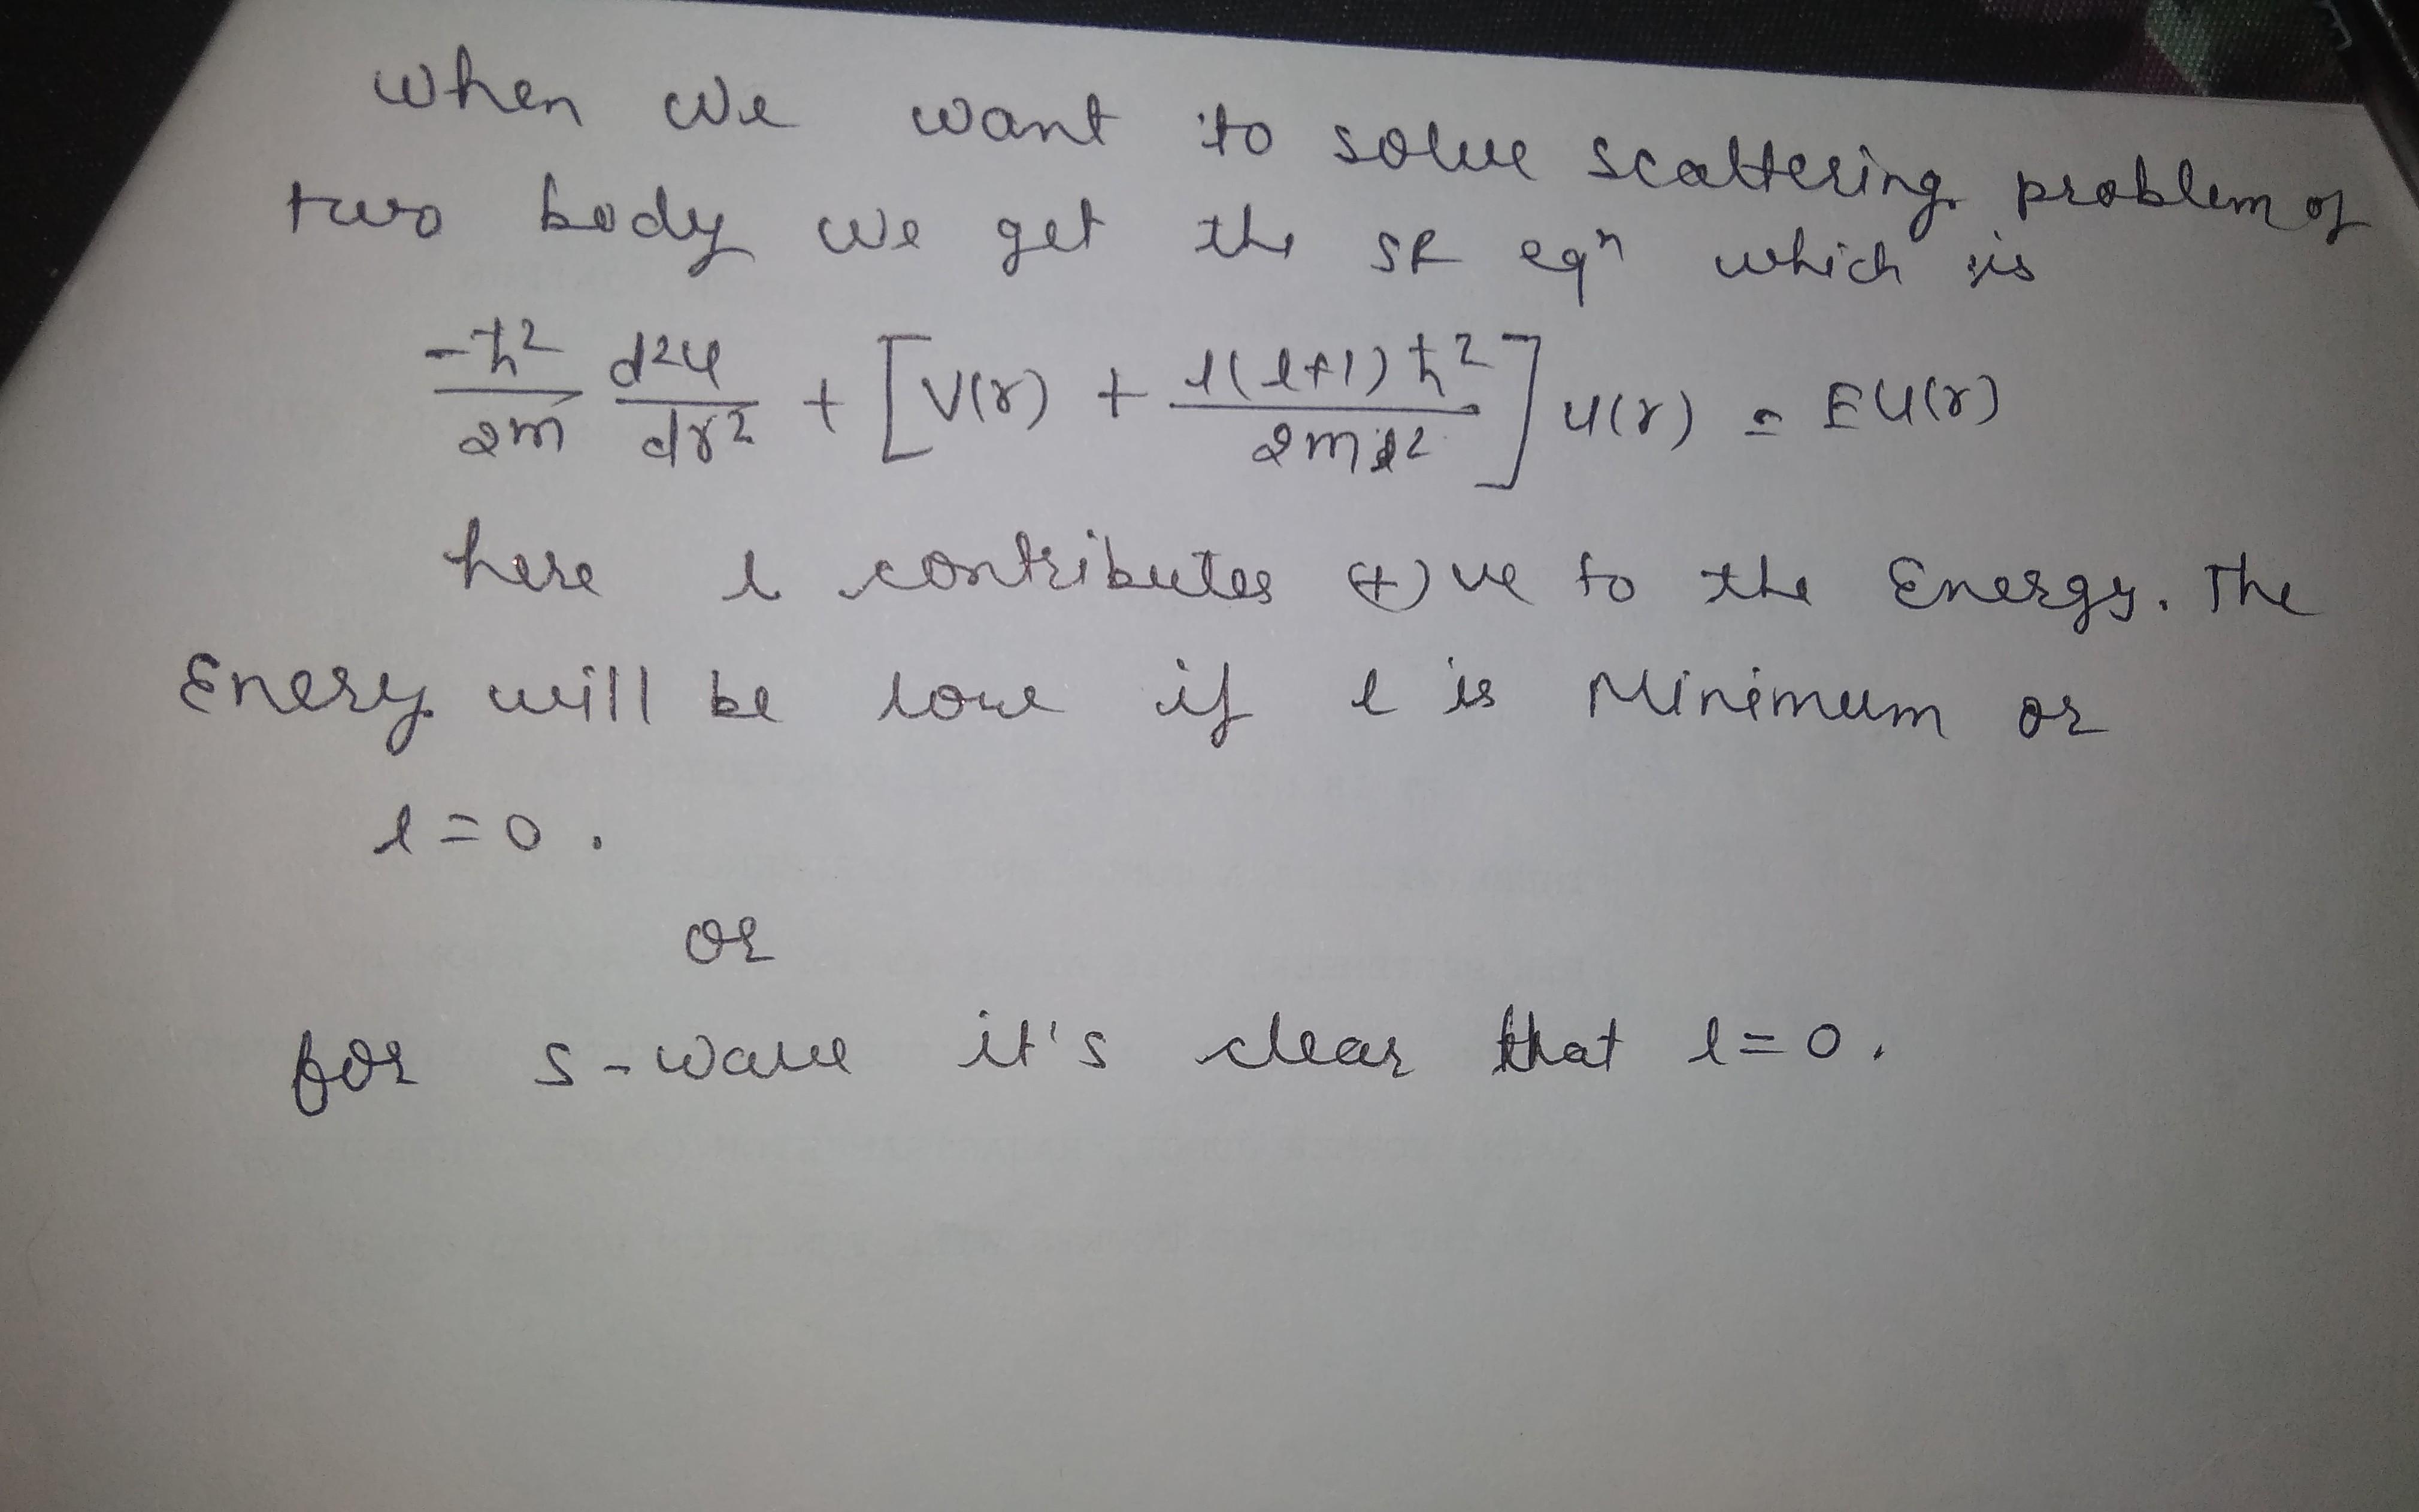 When we want to solve scattering problem of
two body we get the SR eqⁿ which is
-ħ²/2m d²u/dr² + [V(r) + l(l+1)ħ²/2mr²] u(r) = EU(r)
here l contributes (+)ve to the Energy. The
Enery will be low if l is Minimum or
l=0.
or
for s-wave it's clear that l=0.